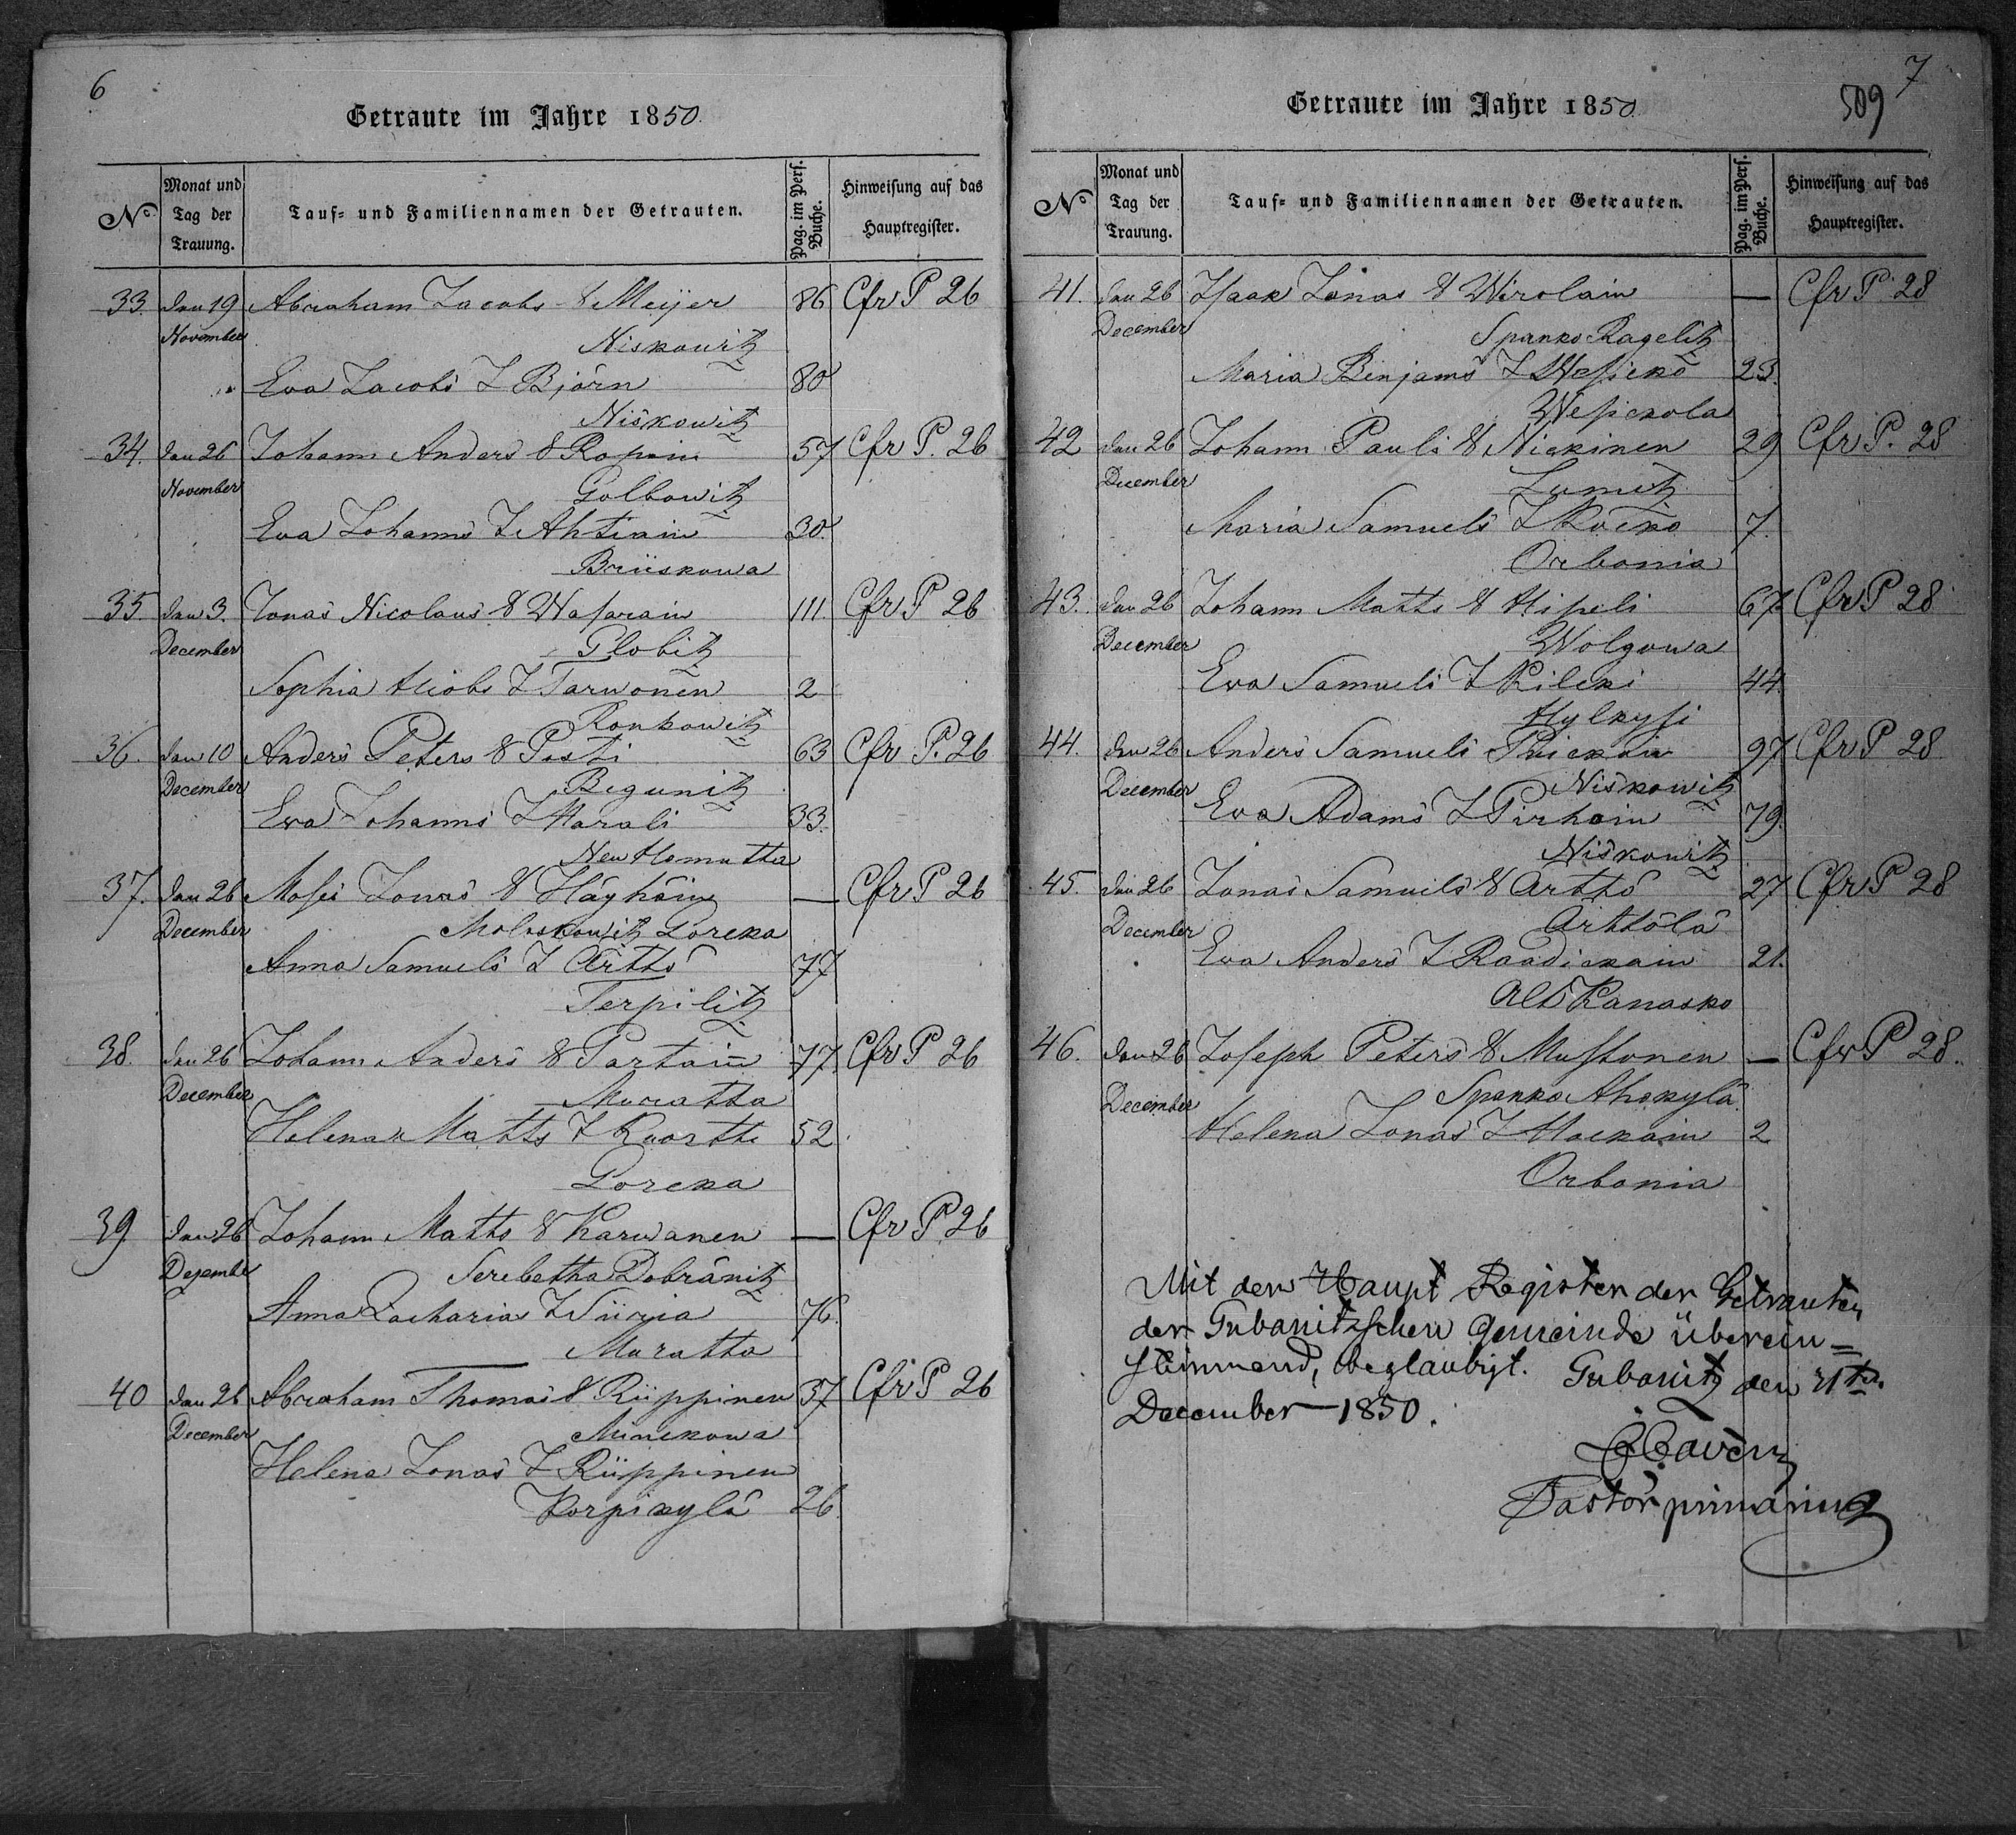 6
Getraute im Jahre 1850.
No. Monat und Tag der Trauung. Tauf- und Familiennamen der Getrauten. Pag. im Pers. Buche. Hinweisung auf das Hauptregister.
33. den 19 Abraham Jacobs S Meijer 86 Cfr P 26
November Niskowitz
" Eva Jacobs T Björn 80
Niskowitz
34. den 26 Johann Anders S Ropain 57 Cfr P. 26
November Golbowitz
Eva Johanns T Ahtiain 30.
Brüskowa
35 den 3. Jonas Nicolaus S Wasarain 111. Cfr P 26
December Globitz
Sophia Hiobs T Tarwonen 2
Ronkowitz
36. den 10 Anders Peters S Posti 63 Cfr P. 26
December Begunitz
Eva Johanns T Harali 33.
Neu Homutha
37. den 26 Moses Jonas S Häyhäin — Cfr P 26
December Moloskowitz Goreka
Anna Samuels T Ärttö 77
Terpilitz
38. den 26 Johann Anders S Partain 77. Cfr P 26
December Muratta
Helena Matts T Kuortti 52.
Goreka
39 den 26 Johann Matts S Karwanen — Cfr P. 26
Dezember Serebetha Dobränitz
Anna Zacharia T Siiria 76.
Muratta
40 den 26 Abraham Thomas S Rüppinen 37 Cfr P 26
December Minekowa
Helena Jonas T Rüppinen
Korpikylä 26.
7
509
Getraute im Jahre 1850.
No Monat und Tag der Trauung. Tauf- und Familiennamen der Getrauten. Pag. im Pers. Buche. Hinweisung auf das Hauptregister.
41. den 26 Isaak Jonas S Wirolain — Cfr P. 28
December Spanko Ragelitz
Maria Benjams T Wesikko 23.
Wesickola
42 den 26 Johann Pauls S Nickinen 29 Cfr P. 28
December Lumitz
Maria Samuels T 7.
Orbonia
43. den 26 Johann Matts S Hipeli 67 Cfr P 28
December Wolgowa
Eva Samuels T Kilcki 44.
Hylkysi
44. den 26 Anders Samuels Puickoin 97 Cfr P 28
December Niskowitz
Eva Adams T Pirhoin 79.
Niskowitz
45. den 26 Jonas Samuels S Ärttö 27 Cfr P 28
December Ärttölä
Eva Anders T Raadickain 21.
Alt Kanasko
46. den 26 Joseph Peters S Mustonen — Cfr P 28.
December Spanko Ahokylä
Helena Jonas T Hackain 2
Orbonia
Mit dem Haupt Register der Getrauten
der Gubanitzschen Gemeinde überein=
stimmend, beglaubigt. Gubanitz den 31ten
December 1850.
Cavén
Pastor primarius